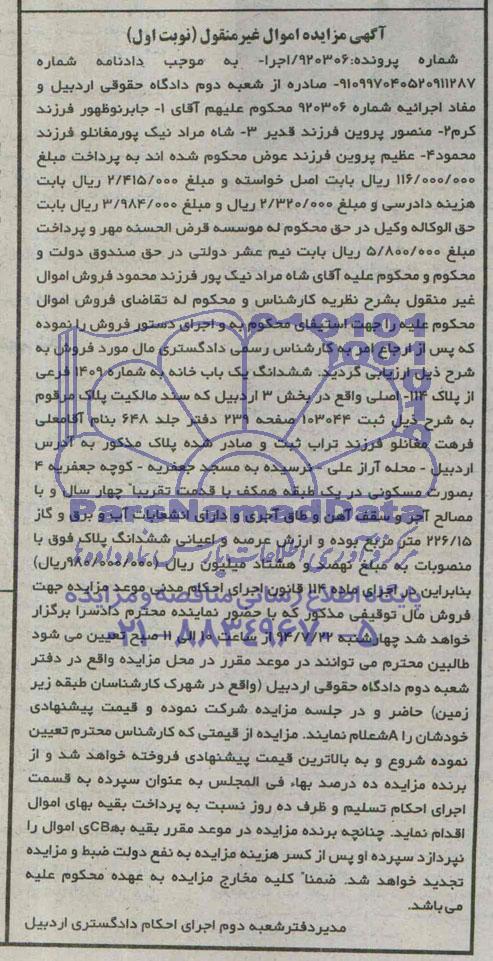 آگهی مزایده اموال غیرمنقول (نوبت اول)
شماره پرونده:۹۲۰۳۰۶/اجرا- به موجب دادنامه شماره
۹۱۰۹۹۷۰۴۰۵۲۰۹۱۱۲۸۷- صادره از شعبه دوم دادگاه حقوقی اردبیل و
مفاد اجرائیه شماره ۹۲۰۳۰۶ محکوم علیهم آقای ۱- جابرنوظهور فرزند
کرم۲- منصور پروین فرزند قدیر ۳- شاه مراد نیک پورمغانلو فرزند
محمود۴- عظیم پروین فرزند عوض محکوم شده اند به پرداخت مبلغ
۱۱۶/۰۰۰/۰۰۰ ریال بابت اصل خواسته و مبلغ ۲/۴۱۵/۰۰۰ ریال بابت
هزینه دادرسی و مبلغ ۲/۳۲۰/۰۰۰ ریال و مبلغ ۳/۹۸۴/۰۰۰ ریال بابت
حق الوکاله وکیل در حق محکوم له موسسه قرض الحسنه مهر و پرداخت
مبلغ ۵/۸۰۰/۰۰۰ ریال بابت نیم عشر دولتی در حق صندوق دولت و
محکوم و محکوم علیه آقای شاه مراد نیک پور فرزند محمود فروش اموال
غیر منقول بشرح نظریه کارشناس و محکوم له تقاضای فروش اموال
محکوم علیه را جهت استیفای محکوم به و اجرای دستور فروش را نموده
که پس از ارجاع امر به کارشناس رسمی دادگستری مال مورد فروش به
شرح ذیل ارزیابی گردید. ششدانگ یک باب خانه به شماره ۱۴۰۹ فرعی
از پلاک ۱۱۴- اصلی واقع در بخش ۳ اردبیل که سند مالکیت پلاک مرقوم
به شرح ذیل ثبت ۱۰۳۰۴۴ صفحه ۲۳۹ دفتر جلد ۶۴۸ بنام آقامعلی
فرهت مغانلو فرزند تراب ثبت و صادر شده پلاک مذکور به آدرس
اردبیل - محله آراز علی - نرسیده به مسجد جعفریه - کوچه جعفریه ۴
بصورت مسکونی در یک طبقه همکف با قدمت تقریبا" چهار سال و با
مصالح آجر و سقف آهن و طاق آجری و دارای انشعابات آب و برق و گاز
۲۲۶/۱۵ متر مربع بوده و ارزش عرصه و اعیانی ششدانگ پلاک فوق با
منصوبات به مبلغ نهصد و هشتاد میلیون ریال (۹۸۰/۰۰۰/۰۰۰ریال)
بنابراین در اجرای ماده ۱۱۴ قانون اجرای احکام مدنی موعد مزایده جهت
فروش مال توقیفی مذکور که با حضور نماینده محترم دادسرا برگزار
خواهد شد چهارشنبه ۹۴/۷/۲۲ از ساعت ۱۰ الی ۱۱ صبح تعیین می شود
طالبین محترم می توانند در موعد مقرر در محل مزایده واقع در دفتر
شعبه دوم دادگاه حقوقی اردبیل (واقع در شهرک کارشناسان طبقه زیر
زمین) حاضر و در جلسه مزایده شرکت نموده و قیمت پیشنهادی
خودشان را Aشعلام نمایند. مزایده از قیمتی که کارشناس محترم تعیین
نموده شروع و به بالاترین قیمت پیشنهادی فروخته خواهد شد و از
برنده مزایده ده درصد بهاء فی المجلس به عنوان سپرده به قسمت
اجرای احکام تسلیم و ظرف ده روز نسبت به پرداخت بقیه بهای اموال
اقدام نماید. چنانچه برنده مزایده در موعد مقرر بقیه بهCBی اموال را
نپردازد سپرده او پس از کسر هزینه مزایده به نفع دولت ضبط و مزایده
تجدید خواهد شد. ضمنا" کلیه مخارج مزایده به عهده محکوم علیه
می باشد.
مدیردفترشعبه دوم اجرای احکام دادگستری اردبیل
ParsNamadData
پایگاه اطلاع رسانی مناقصه و مزایده
۰۲۱-۸۸۳۴۹۶۷۰-۵